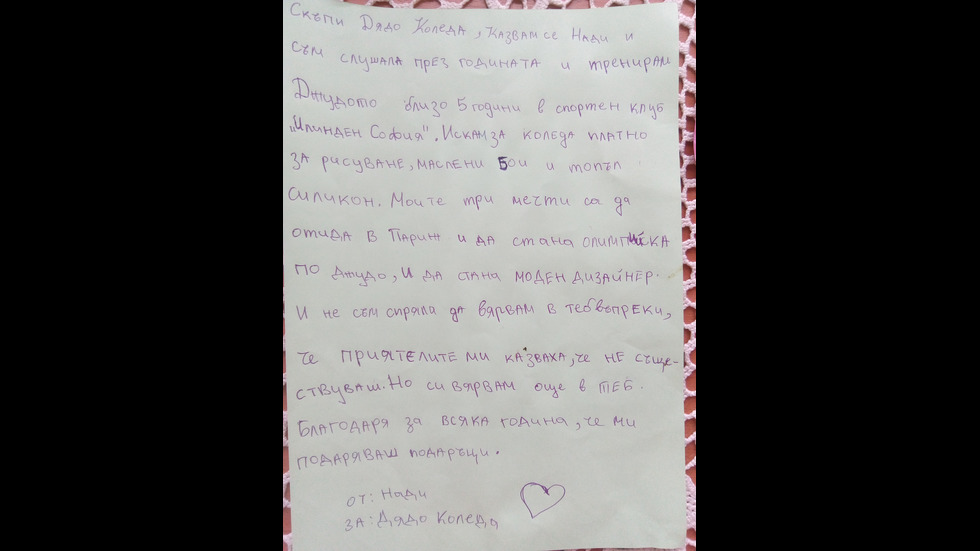 Скъпи Дядо Коледа, казвам се Нади и
съм слушала през годината и тренирам
Джудото близо 5 години в спортен клуб
"Илинден София". Искам за коледа платно
за рисуване, маслени бои и топъл
силикон. Моите три мечти са да
отида в Париж и да стана олимпийска
по джудо, и да стана моден дизайнер.
И не съм спряла да вярвам в теб въпреки,
че приятелите ми казваха, че не съще-
ствуваш. Но си вярвам още в теб.
Благодаря за всяка година, че ми
подаряваш подаръци.
от: Нади
за: Дядо Коледа